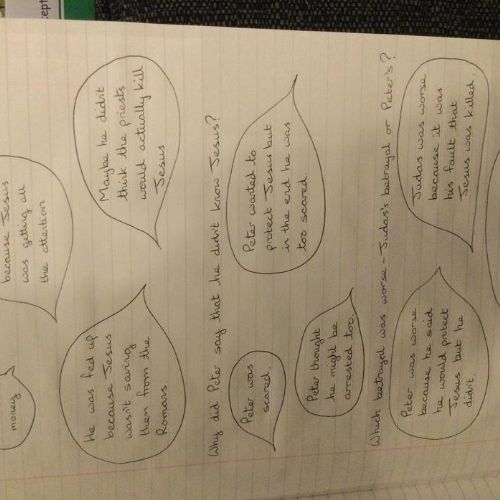 cept
money
because Jesus
was getting all
the attention
He was fed up
because Jesus
wasn't saving
them from the
Romans
Maybe he didn't
think the priests
would actually kill
Jesus
Why did Peter say that he didn't know Jesus?
Peter was
scared.
Peter wanted to
protect Jesus but
in the end he was
too scared.
Peter thought
he might be
arrested too.
Which betrayal was worse - Judas's betrayal or Peter's?
Peter was worse
because he said
he would protect
Jesus but he
didn't
Judas was worse
because it was
his fault that
Jesus was killed.